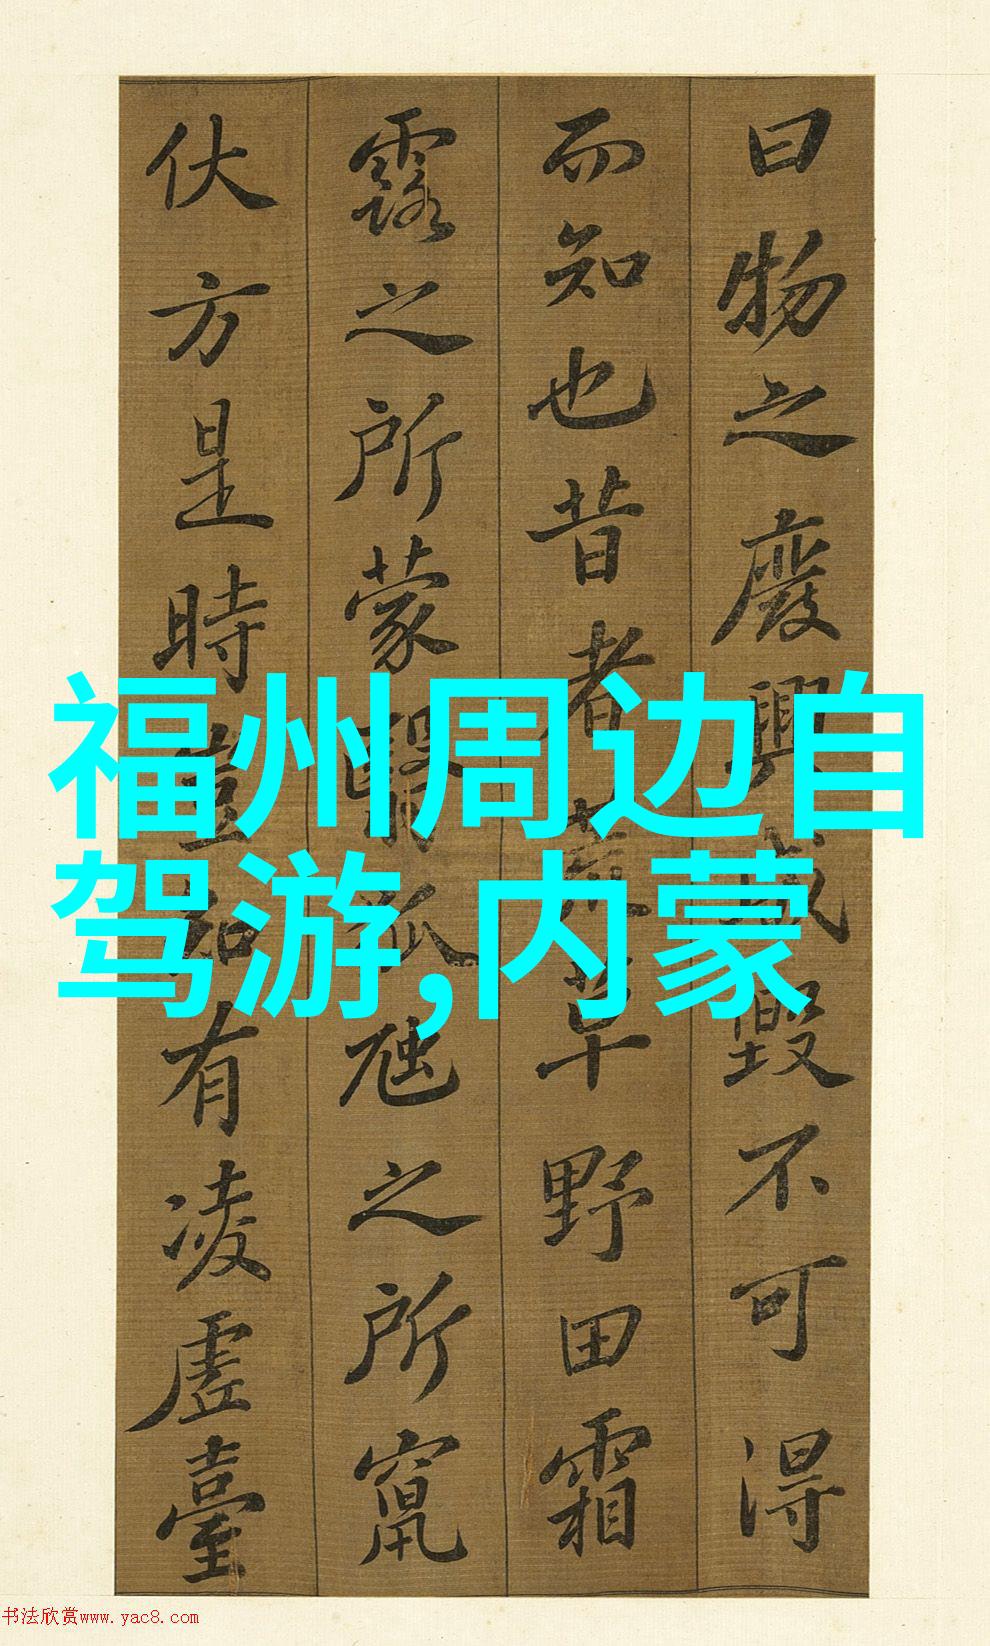 曰物之廢興成毀不可得
而知也昔者荒草野田霜
露之所蒙翳狐虺之所竄
伏方是時豈知有凌虛臺
福州周边自
驾游,内蒙
书法欣赏www.yac8.com